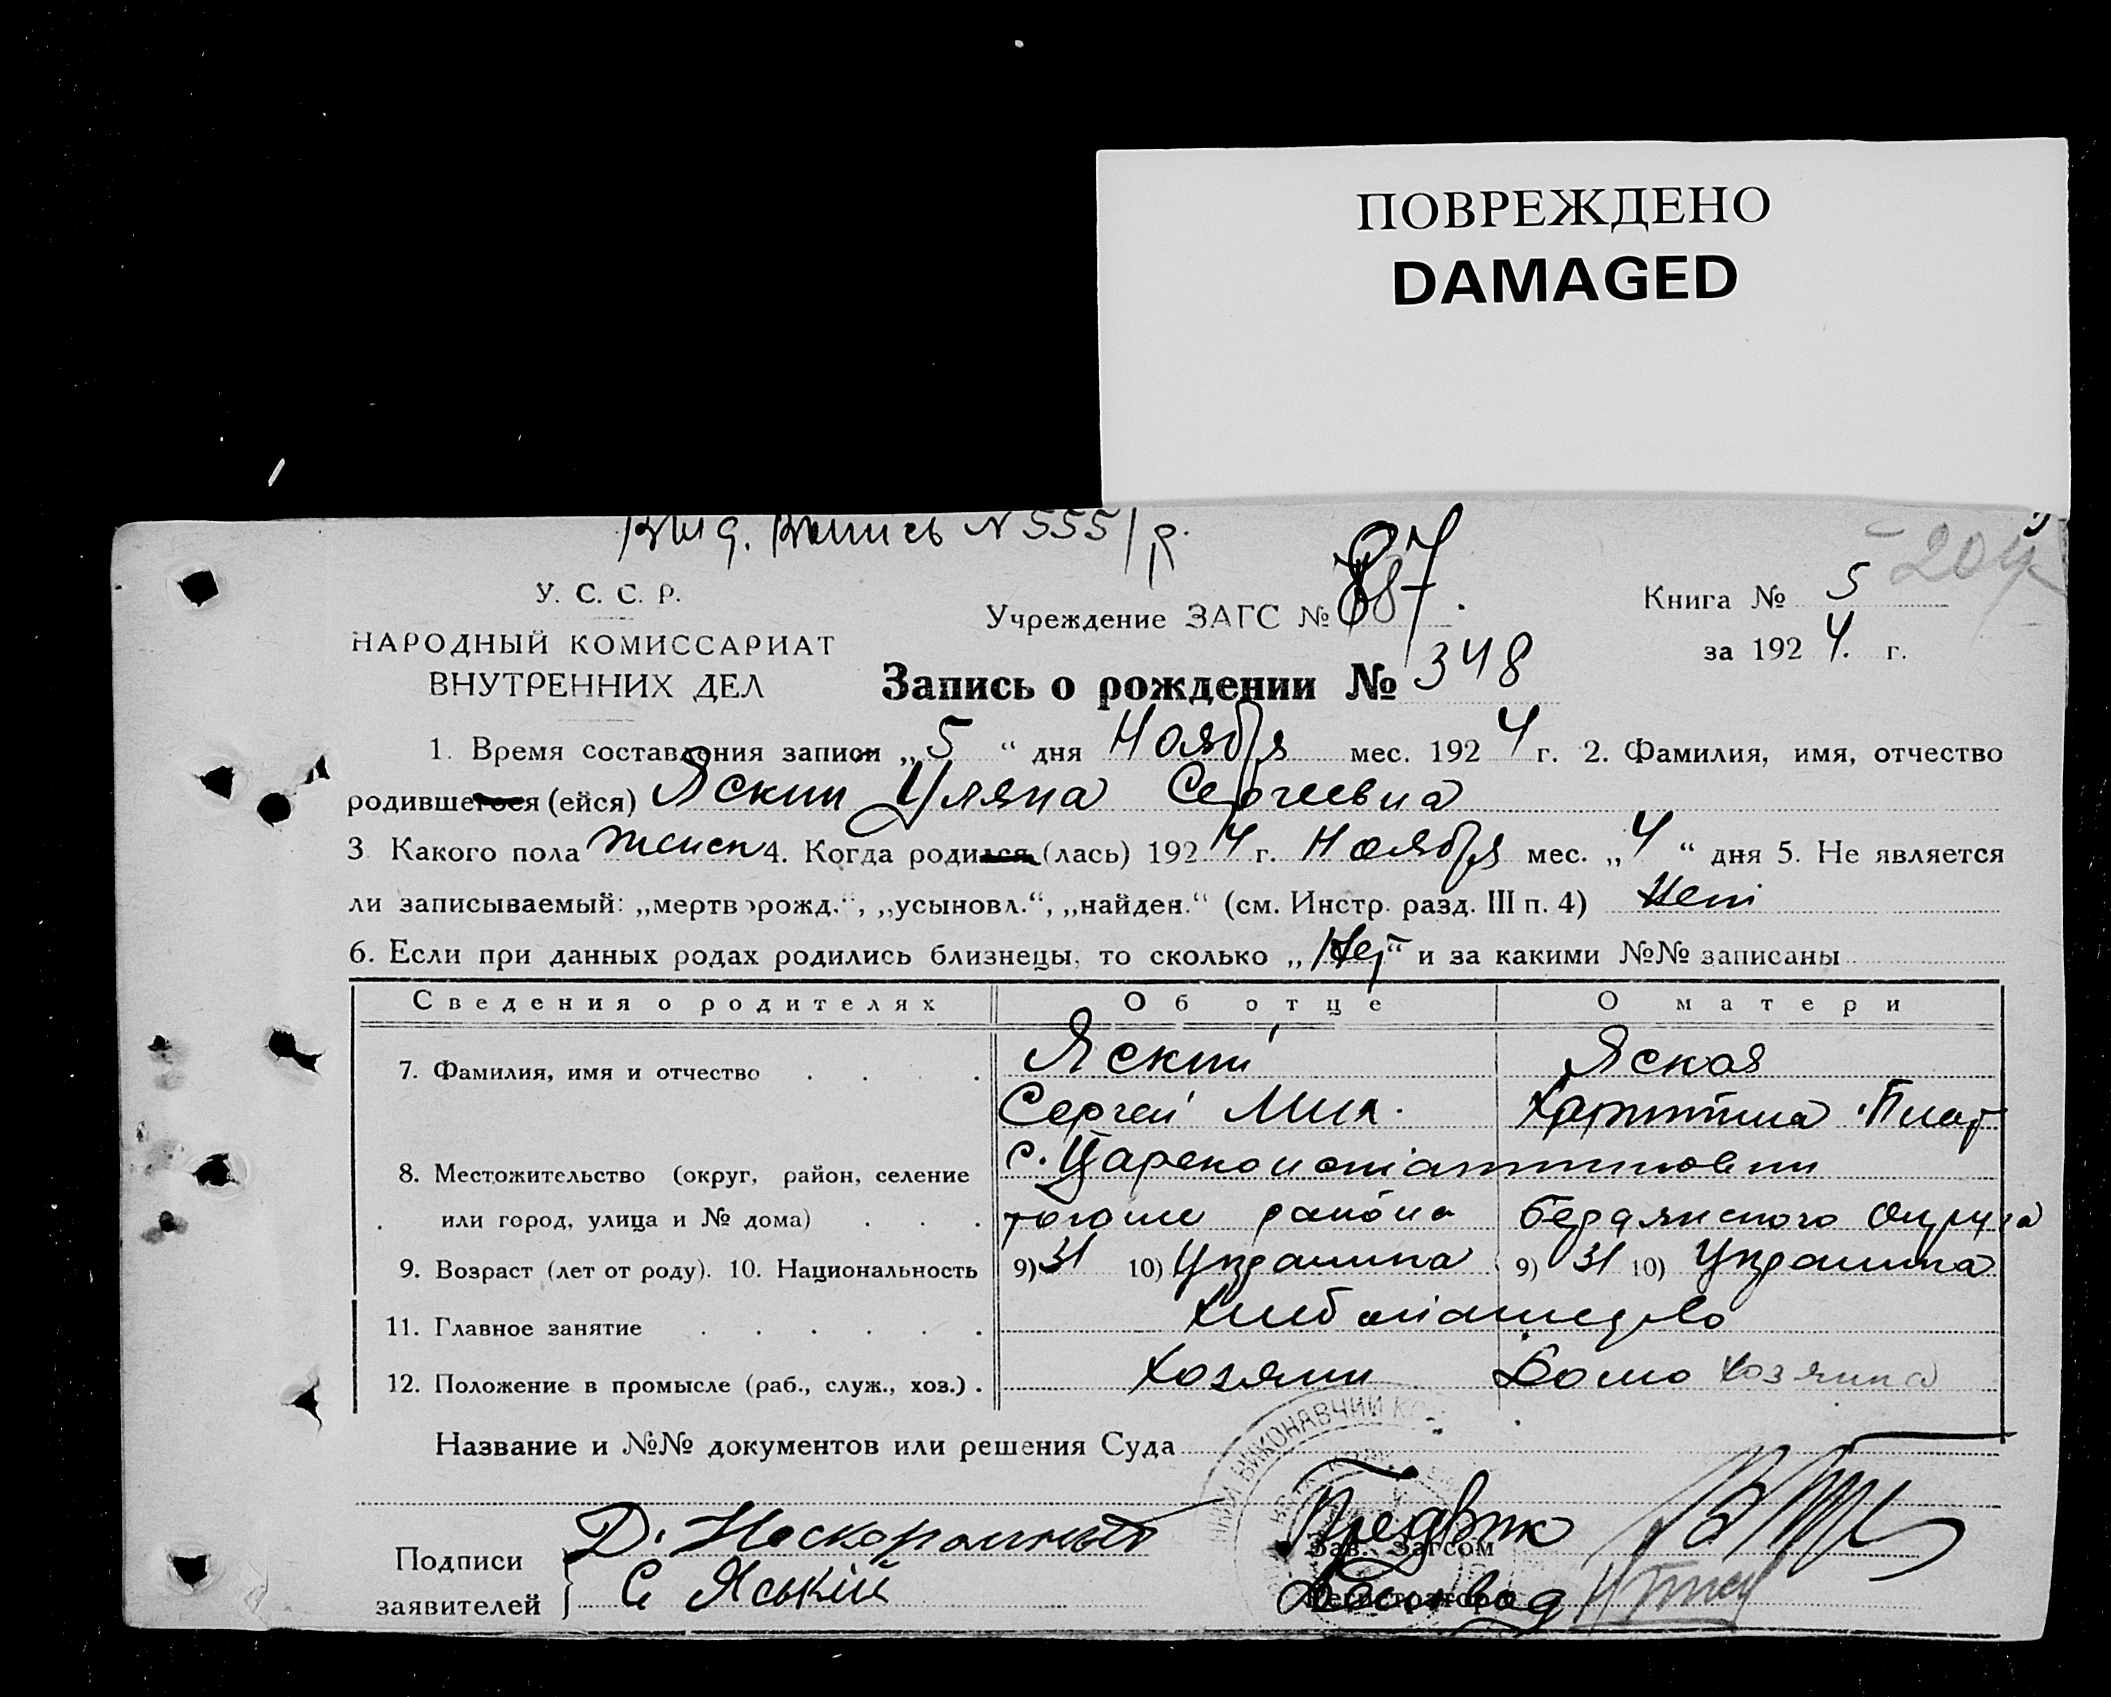 ПОВРЕЖДЕНО
DAMAGED
Выд. Выпись N 555/р.
У. С. С. Р.
НАРОДНЫЙ КОМИССАРИАТ
ВНУТРЕННИХ ДЕЛ
Учреждение ЗАГС № 87.
Книга № 5
за 1924. г.
Запись о рождении № 348
1. Время составления записи „5“ дня Ноября мес. 1924 г. 2. Фамилия, имя, отчество
родившегося (ейся) Яский Уляна Сергеевна
3 Какого пола женск 4. Когда родился (лась) 1924 г. Ноября мес. „4“ дня 5. Не является
ли записываемый: „мертворожд.“, „усыновл.“, „найден.“ (см. Инстр. разд. III п. 4) Нет
6. Если при данных родах родились близнецы, то сколько „Нет“ и за какими №№ записаны
Сведения о родителях Об отце О матери
7. Фамилия, имя и отчество Яский Яская
Сергей Мих. Харитина Плат
8. Местожительство (округ, район, селение с. Цареконстантиновки
или город, улица и № дома) тогоже района Бердянского Округа
9. Возраст (лет от роду). 10. Национальность 9) 31 10) Украинка 9) 31 10) Украинка
11. Главное занятие Хлебопашество
12. Положение в промысле (раб., служ., хоз.) Хозяин Домохозяйка
Название и №№ документов или решения Суда
ВИКОНАВЧИЙ
Подписи
заявителей
Д. Нескоромный
С Яський
Зав. Загсом
Регистратор
Діловод